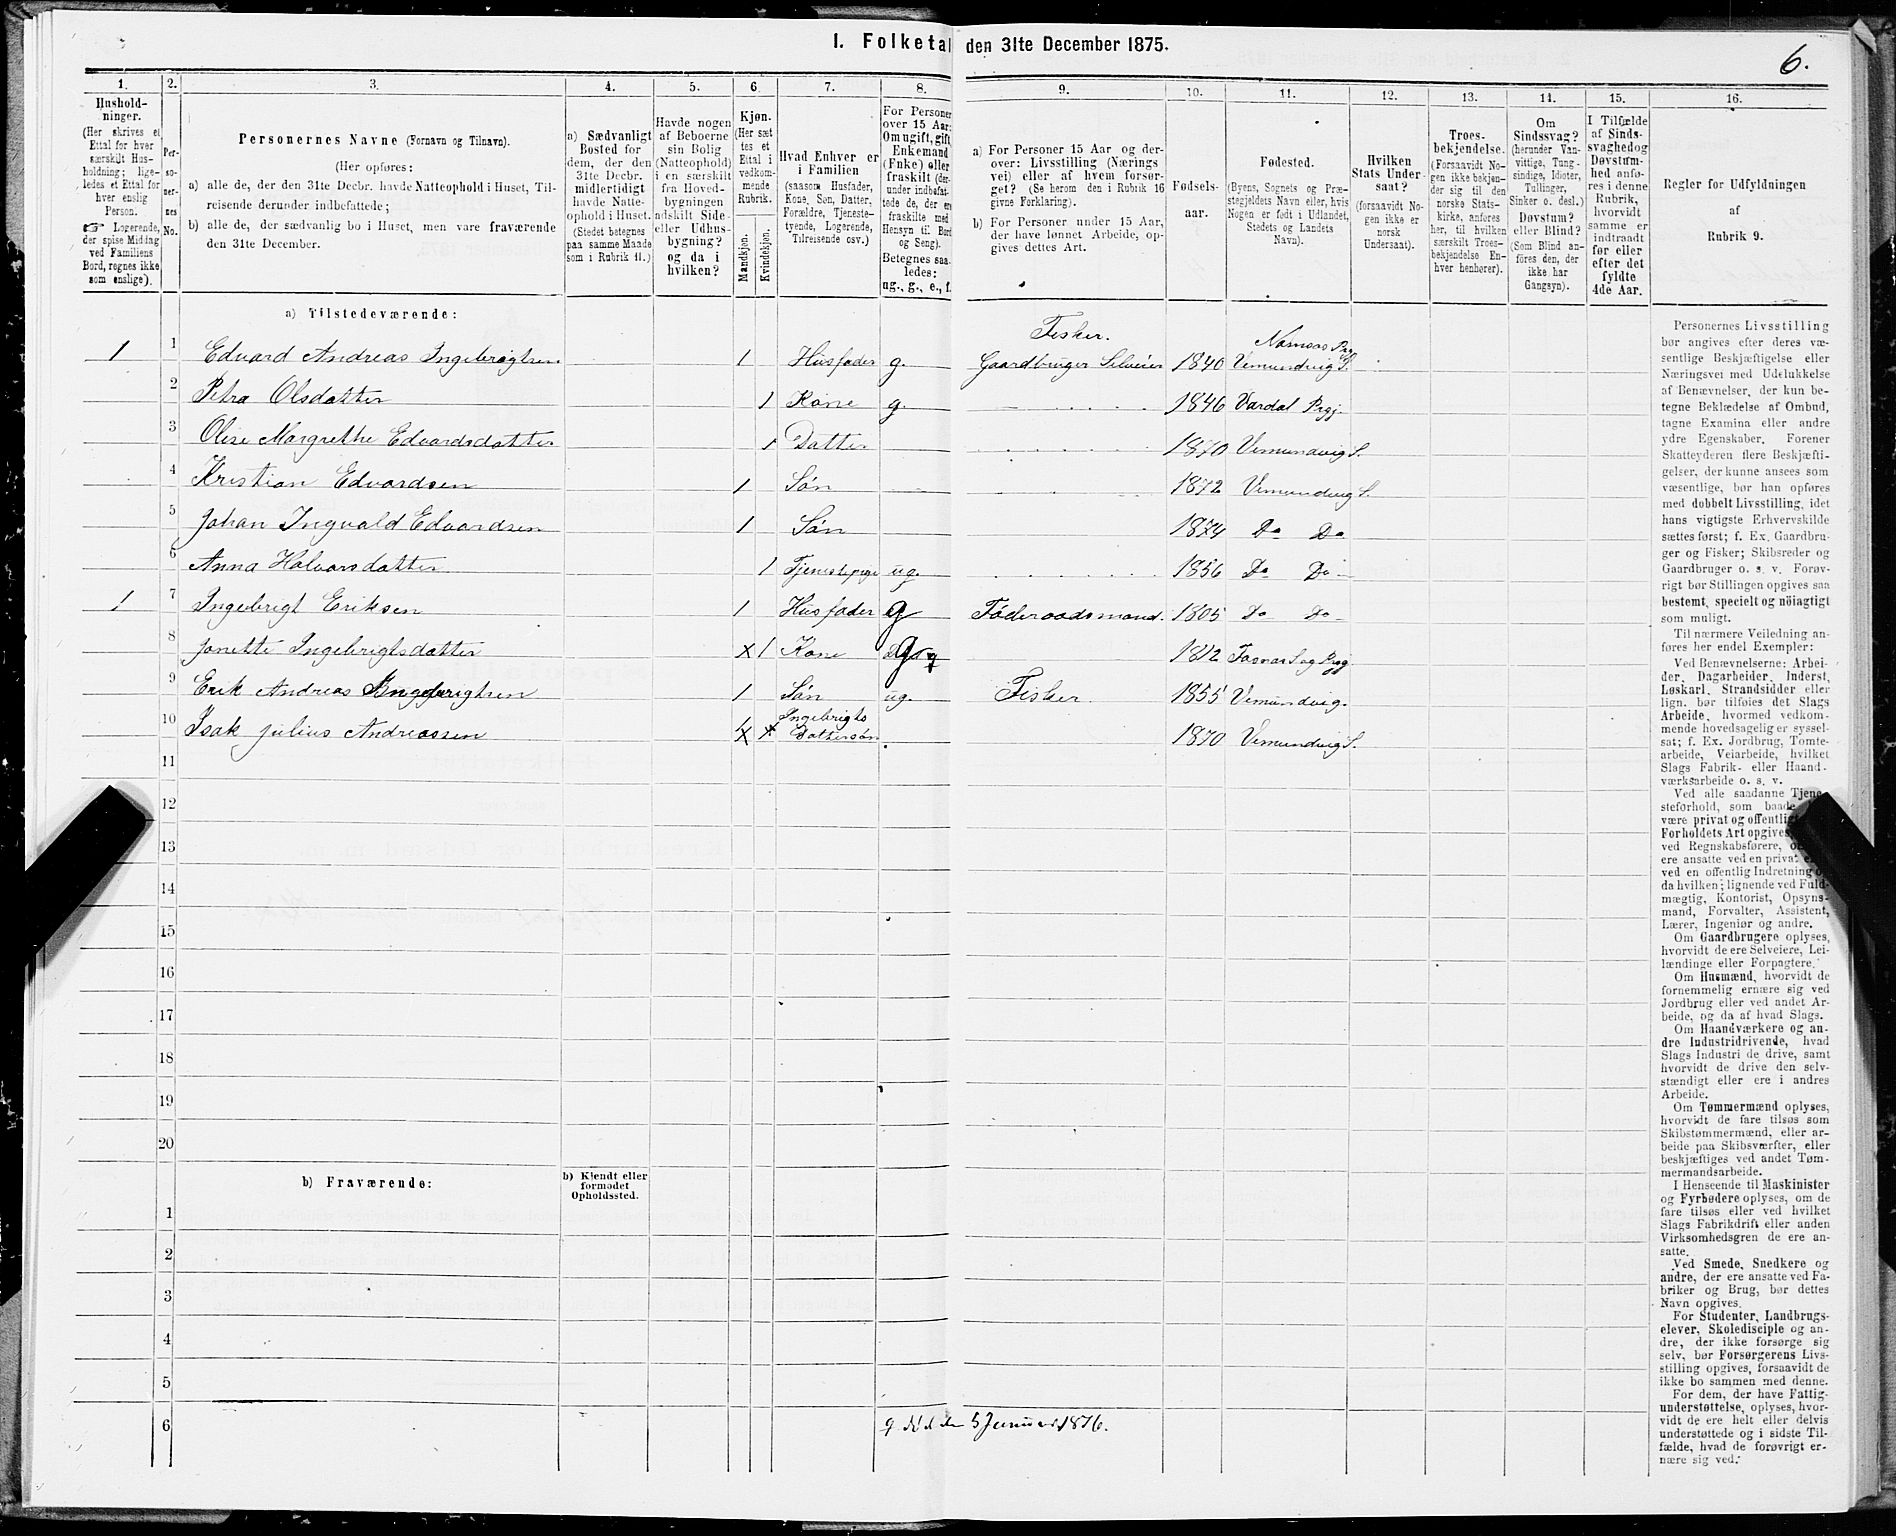 I. Folketal den 31te December 1875.
6.
1. 2. 3. 4. 5. 6. 7. 8. 9. 10. 11. 12. 13. 14. 15. 16.
Hushold-
ninger.
(Her skrives et
Ettal for hver
særskilt Hus-
holdning; lige-
ledes et Ettal for
hver enslig
Person.
☞ Logerende,
der spise Middag
ved Familiens
Bord, regnes ikke
som enslige).
Per-
so-
ner-
nes
No.
Personernes Navne (Fornavn og Tilnavn).
(Her opføres:
a) alle de, der den 31te Decbr. havde Natteophold i Huset, Til-
reisende derunder indbefattede;
b) alle de, der sædvanlig bo i Huset, men vare fraværende
den 31te December.
a) Sædvanligt
Bosted for
dem, der den
31te Decbr.
midlertidigt
havde Natte-
ophold i Huset.
(Stedet betegnes
paa samme Maade
som i Rubrik 11.)
Havde nogen
af Beboerne
sin Bolig
(Natteophold)
i en særskilt
fra Hoved-
bygningen
adskilt Side-
eller Udhus-
bygning?
og da i
hvilken?
Kjøn.
(Her sæt-
tes et
Ettal i
vedkom-
mende
Rubrik.
Mandskjøn.
Kvindekjøn.
Hvad Enhver er
i Familien
(saasom Husfader,
Kone, Søn, Datter,
Forældre, Tjeneste-
tyende, Logerende,
Tilreisende osv.)
For Personer
over 15 Aar:
Om ugift, gift,
Enkemand
(Enke) eller
fraskilt (der-
under indbefat-
tede de, der ere
fraskilte med
Hensyn til Bord
og Seng).
Betegnes saa-
ledes:
ug., g., e., f.
a) For Personer 15 Aar og der-
over: Livsstilling (Nærings
vei) eller af hvem forsør-
get? (Se herom den i Rubrik 16
givne Forklaring).
b) For Personer under 15 Aar,
der have lønnet Arbeide, op-
gives dettes Art.
Fødsels-
aar.
Fødested.
(Byens, Sognets og Præ-
stegjeldets Navn eller, hvis
Nogen er født i Udlandet,
Stedets og Landets
Navn).
Hvilken
Stats Under-
saat?
(forsaavidt No-
gen ikke er
norsk
Undersaat).
Troes-
bekjendelse.
(Forsaavidt No-
gen ikke bekjen-
der sig til den
norske Stats-
kirke, anføres
her, til hvilken
særskilt Troes-
bekjendelse En-
hver henhører).
Om
Sindssvag?
(herunder Van-
vittige, Tung-
sindige, Idioter,
Tullinger,
Sinker o. desl.)
Døvstum?
eller Blind?
(Som Blind an-
føres den, der
ikke har
Gangsyn).
I Tilfælde
af Sinds-
svaghed og
Døvstum-
hed anfø-
res i denne
Rubrik,
hvorvidt
samme er
indtraadt
før eller
efter det
fyldte
4de Aar.
Regler for Udfyldningen
af
Rubrik 9.
a) Tilstedeværende:
1 1 Edvard Andreas Ingebrigtsen 1 Husfader g. Fisker. Gaardbruger Selveier 1840 Namsos Prg Vemundvig S.
2 Petra Olsdatter 1 Kone g. 1846 Vardal Prgj.
3 Oline Margrethe Edvardsdatter 1 Datter 1870 Vemundvig S.
4 Kristian Edvardsen 1 Søn 1872 Vemundvig S.
5 Johan Ingvald Edvardsen 1 Søn 1874 Do Do
6 Anna Halvorsdatter 1 Tjenestepige ug. 1856 Do Do
1 7 Ingebrigt Eriksen 1 Husfader g Føderaadsmand. 1805 Do Do
8 Jonette Ingebrigtsdatter x 1 Kone g 1812 Fosnæs Sog Prgj
9 Erik Andreas Ingebrigtsen 1 Søn ug. Fisker 1855 Vemundvig.
10 Isak Julius Andreassen 1 x x Ingebrigts Dattersøn 1870 Vemundvig S.
11
12
13
14
15
16
17
18
19
20
b) Fraværende:
b) Kjendt eller
formodet
Opholdssted.
1
2
3
4
5
6
død den 5 Januar 1876.
Personernes Livsstilling
bør angives efter deres væ-
sentlige Beskjæftigelse eller
Næringsvei med Udelukkelse
af Benævnelser, der kun be-
tegne Beklædelse af Ombud,
tagne Examina eller andre
ydre Egenskaber. Forener
Skatteyderen flere Beskjæfti-
gelser, der kunne ansees som
væsentlige, bør han opføres
med dobbelt Livsstilling, idet
hans vigtigste Erhvervskilde
sættes først; f. Ex. Gaardbru-
ger og Fisker; Skibsreder og
Gaardbruger o. s. v. Forøv-
rigt bør Stillingen opgives saa
bestemt, specielt og nöiagtigt
som muligt.
Til nærmere Veiledning an-
føres her endel Exempler:
Ved Benævnelserne: Arbei-
der, Dagarbeider, Inderst,
Løskarl, Strandsidder eller
lign. bør tilføies det Slags
Arbeide, hvormed vedkom-
mende hovedsagelig er syssel-
sat; f. Ex. Jordbrug, Tomte-
arbeide, Veiarbeide, hvilket
Slags Fabrik- eller Haand-
værksarbeide o. s. v.
Ved alle saadanne Tjene-
steforhold, som baade
være privat og offentlig
Forholdets Art opgives
ved Regnskabsførere,
ere ansatte ved en privat
ved en offentlig Indretning
da hvilken; lignende ved Fuld-
mægtig, Kontorist, Opsyns-
mand, Forvalter, Assistent,
Lærer, Ingeniør og andre.
Om Gaardbrugere oplyses,
hvorvidt de ere Selveiere, Lei-
lændinge eller Forpagtere.
Om Husmænd, hvorvidt de
fornemmelig ernære sig ved
Jordbrug eller ved andet Ar-
beide, og da af hvad Slags.
Om Haandværkere og an-
dre Industridrivende, hvad
Slags Industri de drive, samt
hvorvidt de drive den selv-
stændigt eller ere i andres
Arbeide.
Om Tømmermænd oplyses,
hvorvidt de fare tilsøs som
Skibstømmermænd, eller ar-
beide paa Skibsværfter, eller
beskjæftiges ved andet Tøm-
mermandsarbeide.
I Henseende til Maskinister
og Fyrbødere oplyses, om de
fare tilsøs eller ved hvilket
Slags Fabrikdrift eller anden
Virksomhedsgren de ere an-
satte.
Ved Smede, Snedkere og
andre, der ere ansatte ved Fa-
briker og Brug, bør dettes
Navn opgives.
For Studenter, Landbrugs-
elever, Skoledisciple og an-
dre, der ikke forsørge sig
selv, bør Forsørgerens Livs-
stilling opgives, forsaavidt de
ikke bo sammen med denne.
For dem, der have Fattig-
understøttelse, oplyses, hvor-
vidt de ere helt eller delvis
understøttede og i sidste Til-
fælde, hvad de forøvrigt er-
nære sig ved.